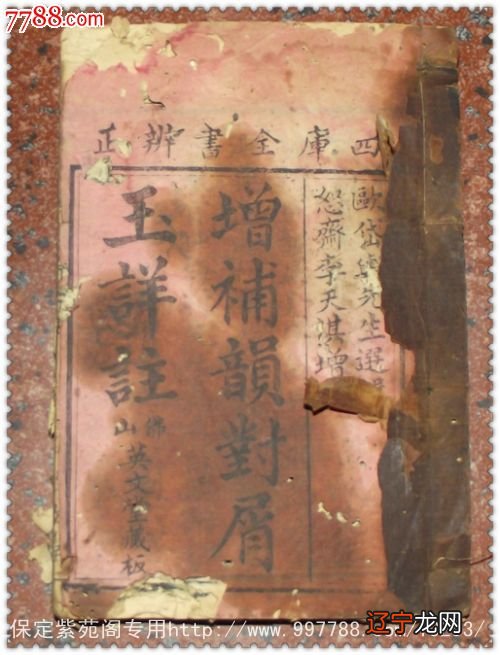 7788.com
四庫全書辨正
歐岱
先生選
恕齋李天淇增
增補韻對屑
玉詳註
佛山
英文堂藏板
保定紫苑阁专用http://www.997788.
3/
辽宁龙网